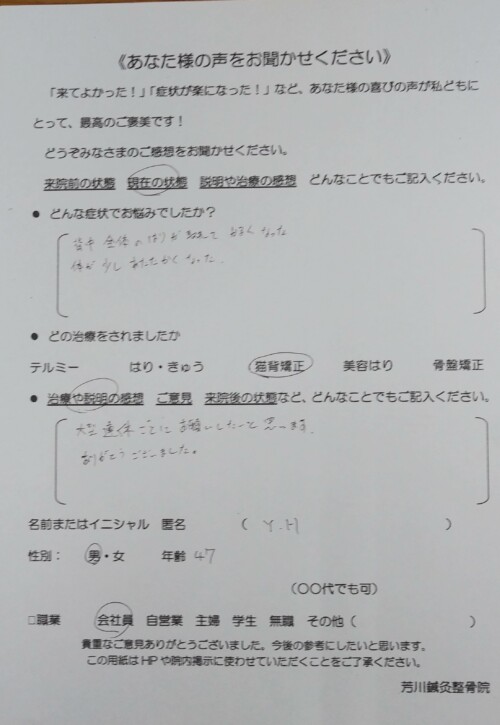 《あなた様の声をお聞かせください》
「来てよかった！」「症状が楽になった！」など、あなた様の喜びの声が私どもに
とって、最高のご褒美です！
どうぞみなさまのご感想をお聞かせください。
来院前の状態 現在の状態 説明や治療の感想 どんなことでもご記入ください。
● どんな症状でお悩みでしたか？
背中全体のはりが なくなった
体が少しあたたかくなった
● どの治療をされましたか
テルミー はり・きゅう 猫背矯正 美容はり 骨盤矯正
● 治療や説明の感想 ご意見 来院後の状態など、どんなことでもご記入ください。
大型連休ごとにお願いしたいと思います。
ありがとうございました。
名前またはイニシャル 匿名 （ Y.H ）
性別： 男・女 年齢 47
（〇〇代でも可）
□職業 会社員 自営業 主婦 学生 無職 その他（ ）
貴重なご意見ありがとうございました。今後の参考にしたいと思います。
この用紙はHPや院内掲示に使わせていただくことをご了承ください。
芳川鍼灸整骨院